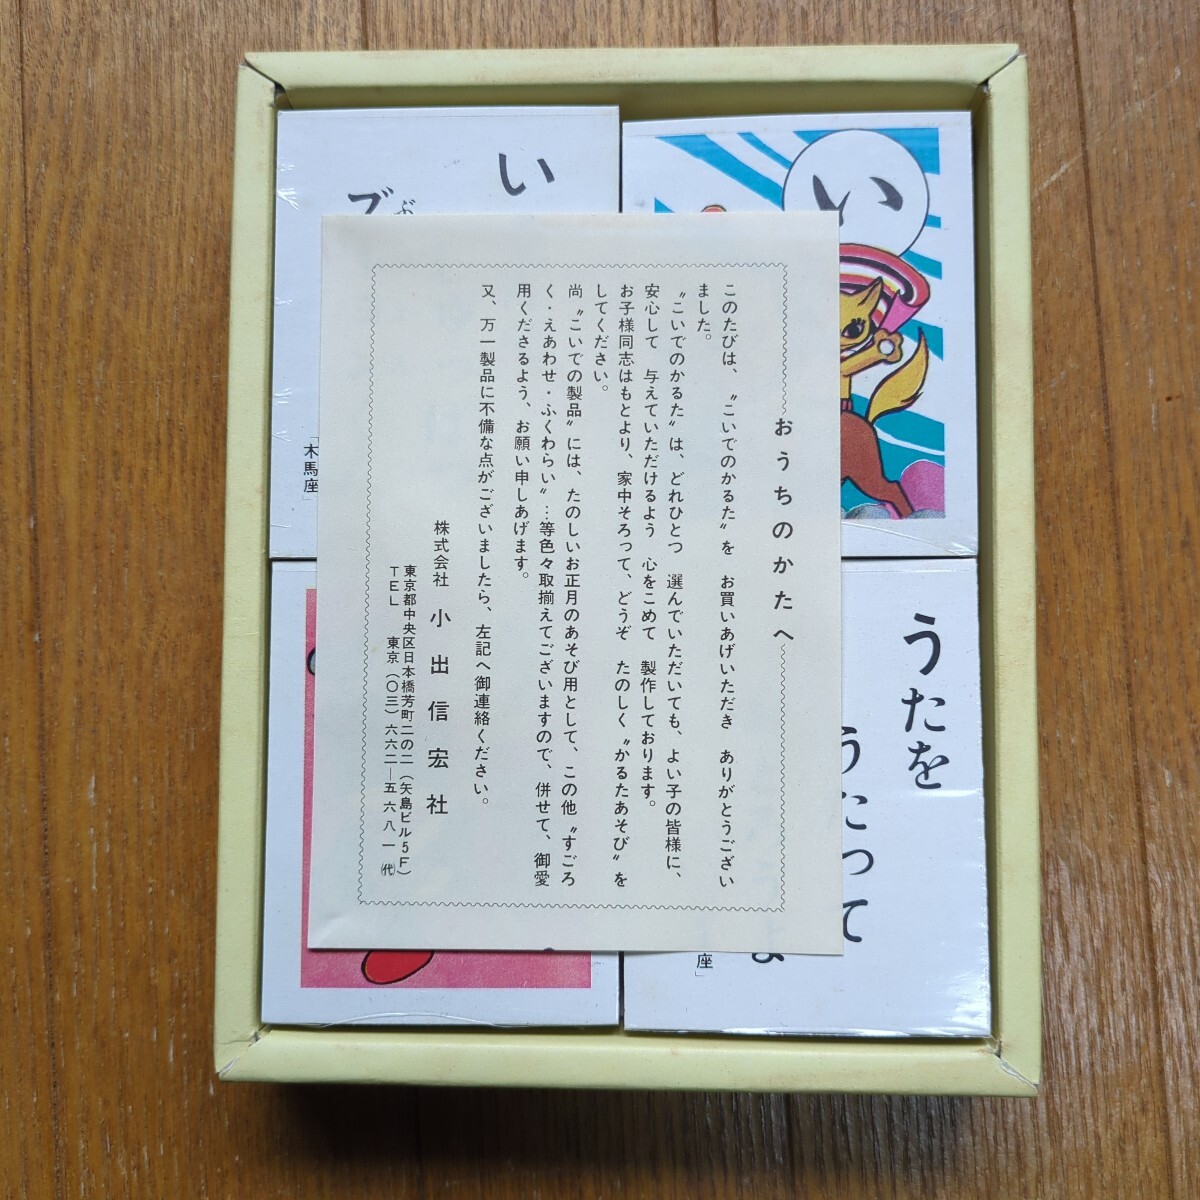 おうちのかたへ
このたびは、〝こいでのかるた〟を　お買いあげいただき　ありがとうござい
ました。
〝こいでのかるた〟は、どれひとつ　選んでいただいても、よい子の皆様に、
安心して　与えていただけるよう　心をこめて　製作しております。
お子様同志はもとより、家中そろって、どうぞ　たのしく〝かるたあそび〟を
してください。
尚〝こいでの製品〟には、たのしいお正月のあそび用として、この他〝すごろ
く・えあわせ・ふくわらい〟…等色々取揃えてございますので、併せて、御愛
用くださるよう、お願い申しあげます。
又、万一製品に不備な点がございましたら、左記へ御連絡ください。
株式会社　小出信宏社
東京都中央区日本橋芳町二の二（矢島ビル5F）
TEL　東京（〇三）六六二―五六八一㈹
い
い
ブ
ぶ
「木馬座」
うたを
うたって
よ
座」